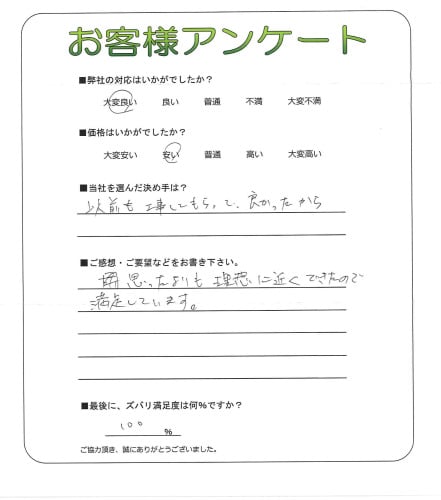 お客様アンケート
■弊社の対応はいかがでしたか?
大変良い 良い 普通 不満 大変不満
■価格はいかがでしたか?
大変安い 安い 普通 高い 大変高い
■当社を選んだ決め手は?
以前も工事してもらって、良かったから
■ご感想・ご要望などをお書き下さい。
思ったよりも理想に近くできたので
満足しています。
■最後に、ズバリ満足度は何%ですか?
100 %
ご協力頂き、誠にありがとうございました。